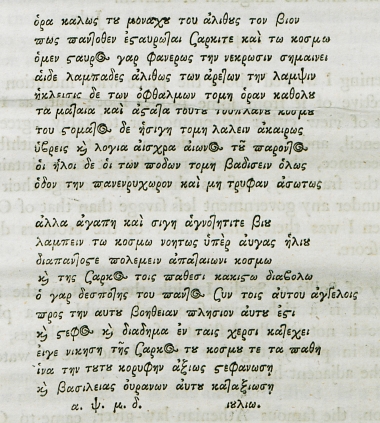 ὁρα καλως τȣ μοναχȣ του ἀλιθȣς τον βιον
πως πανʆοθεν ἐςαυρωʆαι ςαρκιτε καὶ τω κοσμω
ὁμεν ςαυρος γαρ φανερως την νεκρωσιν σημαινει
αἱδε λαμπαδες ἀλιθως των ἀρεʆων την λαμψιν
ἡκλεισις δε των ὀφθαλμων τομη ὁραν καθολȣ
τα μαʆαια καὶ ἀςαʆα τουτȣ τουπλανȣ κοσμȣ
του ςομαʆος δε ἡσιγη τομη λαλειν ἀκαιρως
ὑβρεις ϗ λογια αἰσχρα αἰωνος τȣ παροντος
οἱ ἡλοι δε οἱ των ποδων τομη βαδισειν ὁλως
ὁδον την πανευρυχωρον καὶ μη τρυφαν ἀσωτως
ἀλλα ἀγαπη και σιγη ἁγνοʆητιτε βιȣ
λαμπειν τω κοσμω νοητως ὑπερ ἀυγας ἡλιȣ
διαπανʆοςτε πολεμειν ἀπαʆαιωνι κοσμω
ϗ της ςαρκος τοις παθεσι κακιςω διαβολω
ὁ γαρ δεσποʆης του πανʆος ςυν τοις ἀυτου ἀγγελοις
προς την αυτȣ βοηθειαν πλησιον ἀυτȣ ἐςι
ϗ ςεφος ϗ διαδημα ἐν ταις χερσι καʆεχει
ειγε νικηση τῆς ςαρκος τȣ κοσμȣ τε τα παθη
ἱνα την τȣτȣ κορυφην ἀξιως ςεφανωση
ϗ βασιλειας ȣρανων ἀυτȣ καʆαξιωση
α. ψ. μ. δ. ιȣλιω.